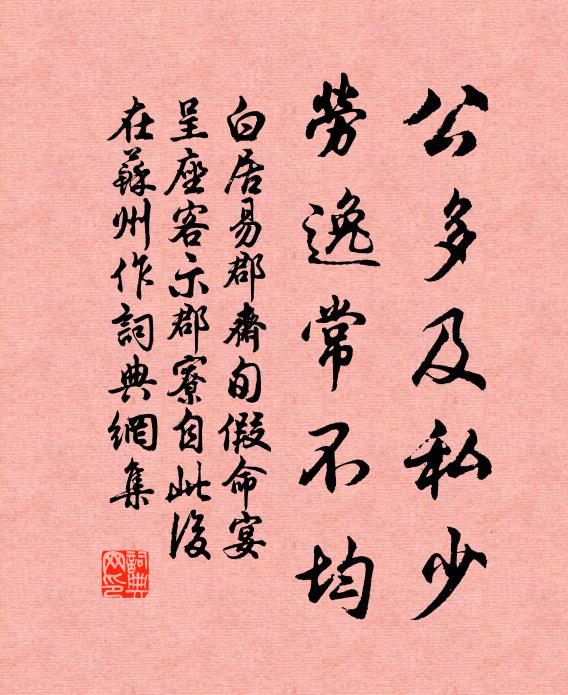 公多及私少
勞逸常不均
白居易郡齋旬假命宴
呈座客示郡寮自此後
在蘇州作詞典網集
詞典网印